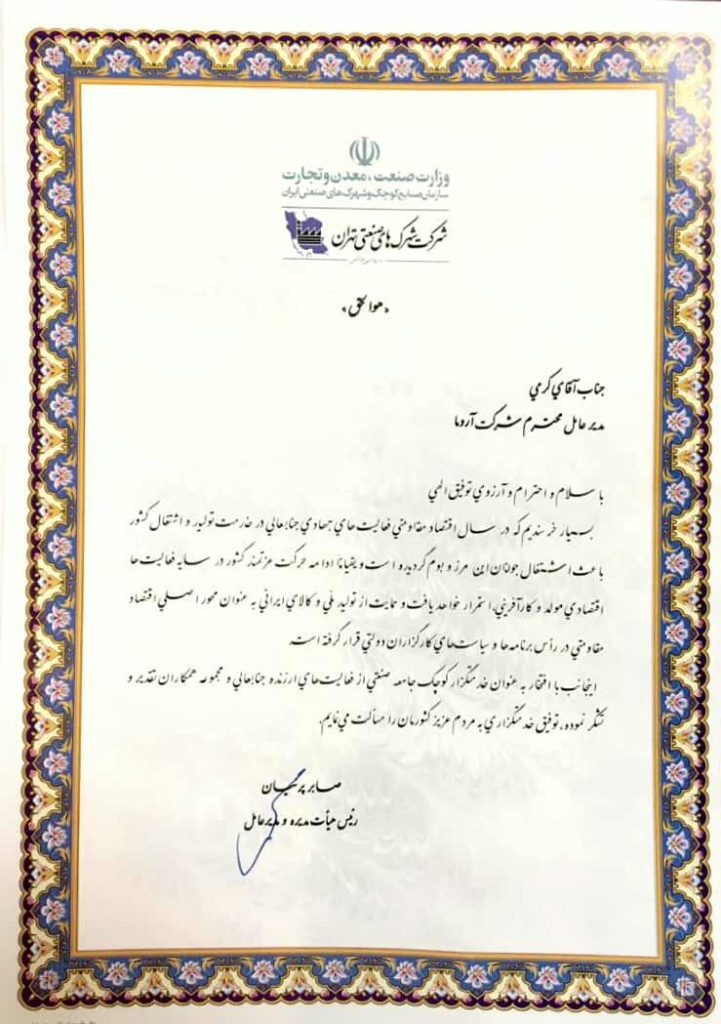 وزارت صنعت، معدن و تجارت
سازمان صنایع کوچک و شهرک های صنعتی ایران
شرکت شهرک های صنعتی تهران
« هوالحق »
جناب آقاي کرمي
مدیر عامل محترم شرکت آروما
با سلام و احترام و آرزوي توفیق الهي
بسیار خرسندیم که در سال اقتصاد مقاومتي فعالیت هاي جهادي جنابعالي در خدمت تولید و اشتغال کشور
باعث اشتغال جوانان این مرز و بوم گردیده است و یقیناً ادامه حرکت عزتمند کشور در سایه فعالیت ها
اقتصادي مولد و کارآفریني، استمرار خواهد یافت و حمایت از تولید ملي و کالاي ایراني به عنوان محور اصلي اقتصاد
مقاومتي در رأس برنامه ها و سیاست هاي کارگزاران دولتي قرار گرفته است.
اینجانب با افتخار به عنوان خدمتگزار کوچک جامعه صنعتي از فعالیت هاي ارزنده جنابعالي و مجموعه همکاران تقدیر و
تشکر نموده، توفیق خدمتگزاري به مردم عزیز کشورمان را مسألت مي نمایم.
صابر پرنیان
رئیس هیأت مدیره و مدیر عامل
15